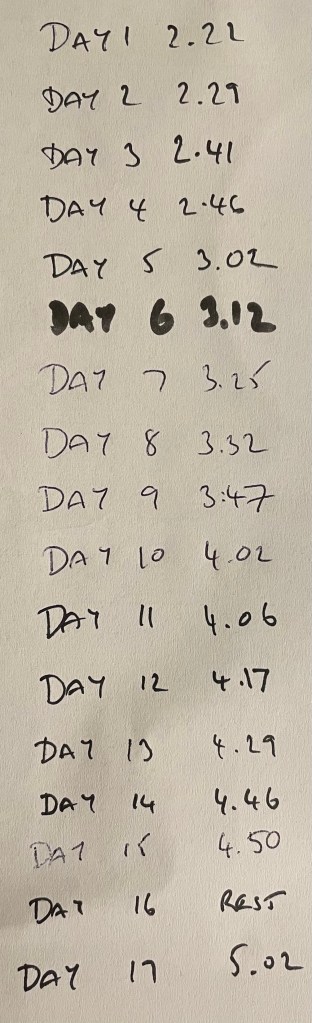 DAY 1 2.22
DAY 2 2.29
DAY 3 2.41
DAY 4 2.46
DAY 5 3.02
DAY 6 3.12
DAY 7 3.25
DAY 8 3.32
DAY 9 3:47
DAY 10 4.02
DAY 11 4.06
DAY 12 4.17
DAY 13 4.29
DAY 14 4.46
DAY 15 4.50
DAY 16 REST
DAY 17 5.02